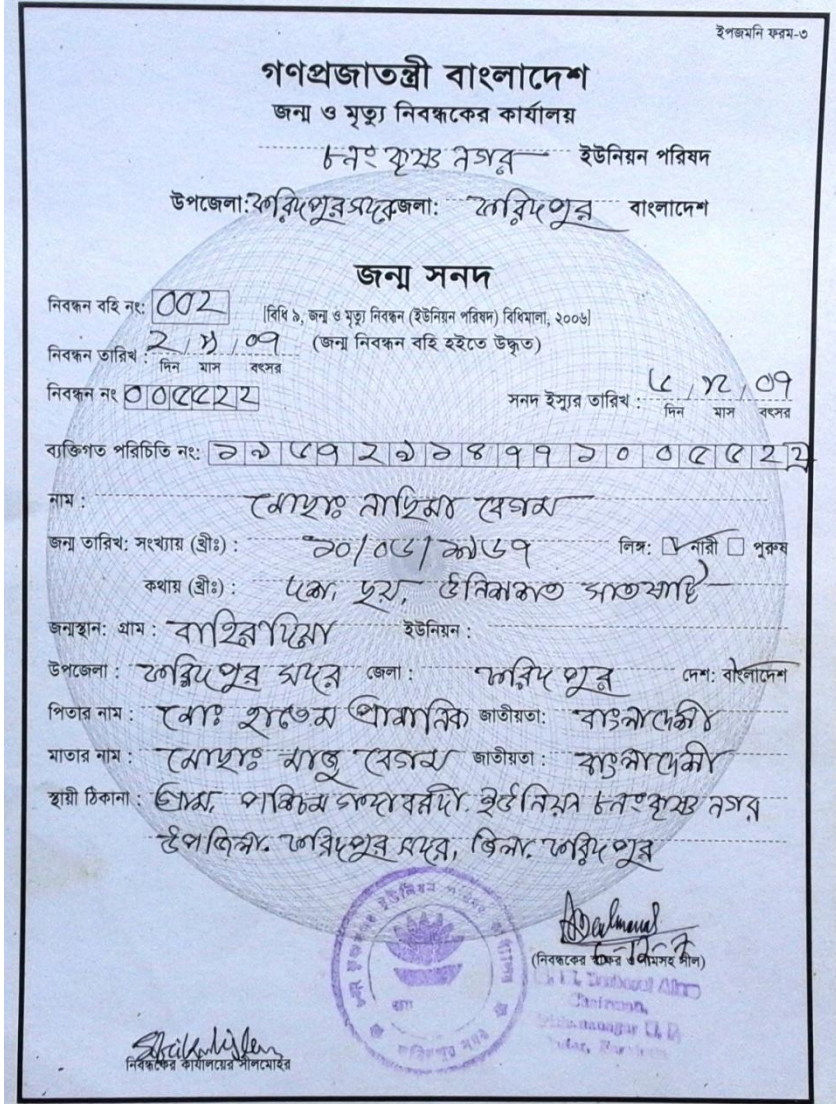 ইপজমনি ফরম-৩
গণপ্রজাতন্ত্রী বাংলাদেশ
জন্ম ও মৃত্যু নিবন্ধকের কার্যালয়
৮নং কৃষ্ণ নগর ইউনিয়ন পরিষদ
উপজেলা: ফরিদপুর সদর জেলা: ফরিদপুর বাংলাদেশ
জন্ম সনদ
নিবন্ধন বহি নং: 002
[বিধি ৯, জন্ম ও মৃত্যু নিবন্ধন (ইউনিয়ন পরিষদ) বিধিমালা, ২০০৬]
নিবন্ধন তারিখ : (জন্ম নিবন্ধন বহি হইতে উদ্ধৃত)
দিন মাস বৎসর
নিবন্ধন নং ০০৫৫২২
সনদ ইস্যুর তারিখ :
দিন মাস বৎসর
ব্যক্তিগত পরিচিতি নং: ১৯৬৭২৯১৪৭৭১০০৫৫২২
নাম : মোছাঃ নাছিমা বেগম
জন্ম তারিখ: সংখ্যায় (খ্রীঃ) : ১০/০৬/১৯৬৭ লিঙ্গ: নারী পুরুষ
কথায় (খ্রীঃ) : দশ, ছয়, উনিশশত সাতষাট্টি
জন্মস্থান: গ্রাম : বাহিরদিয়া ইউনিয়ন :
উপজেলা : ফরিদপুর সদর জেলা : ফরিদপুর দেশ: বাংলাদেশ
পিতার নাম : মোঃ হাতেম প্রামানিক জাতীয়তা: বাংলাদেশী
মাতার নাম : মোছাঃ মাজু বেগম জাতীয়তা : বাংলাদেশী
স্থায়ী ঠিকানা : গ্রাম, পশ্চিম গদাধরদী. ইউনিয়ন ৮নং কৃষ্ণ নগর
উপজিলা. ফরিদপুর সদর, জিলা. ফরিদপুর
(নিবন্ধকের স্বাক্ষর ও নামসহ সীল)
Chairman,
নিবন্ধকের কার্যালয়ের সীলমোহর